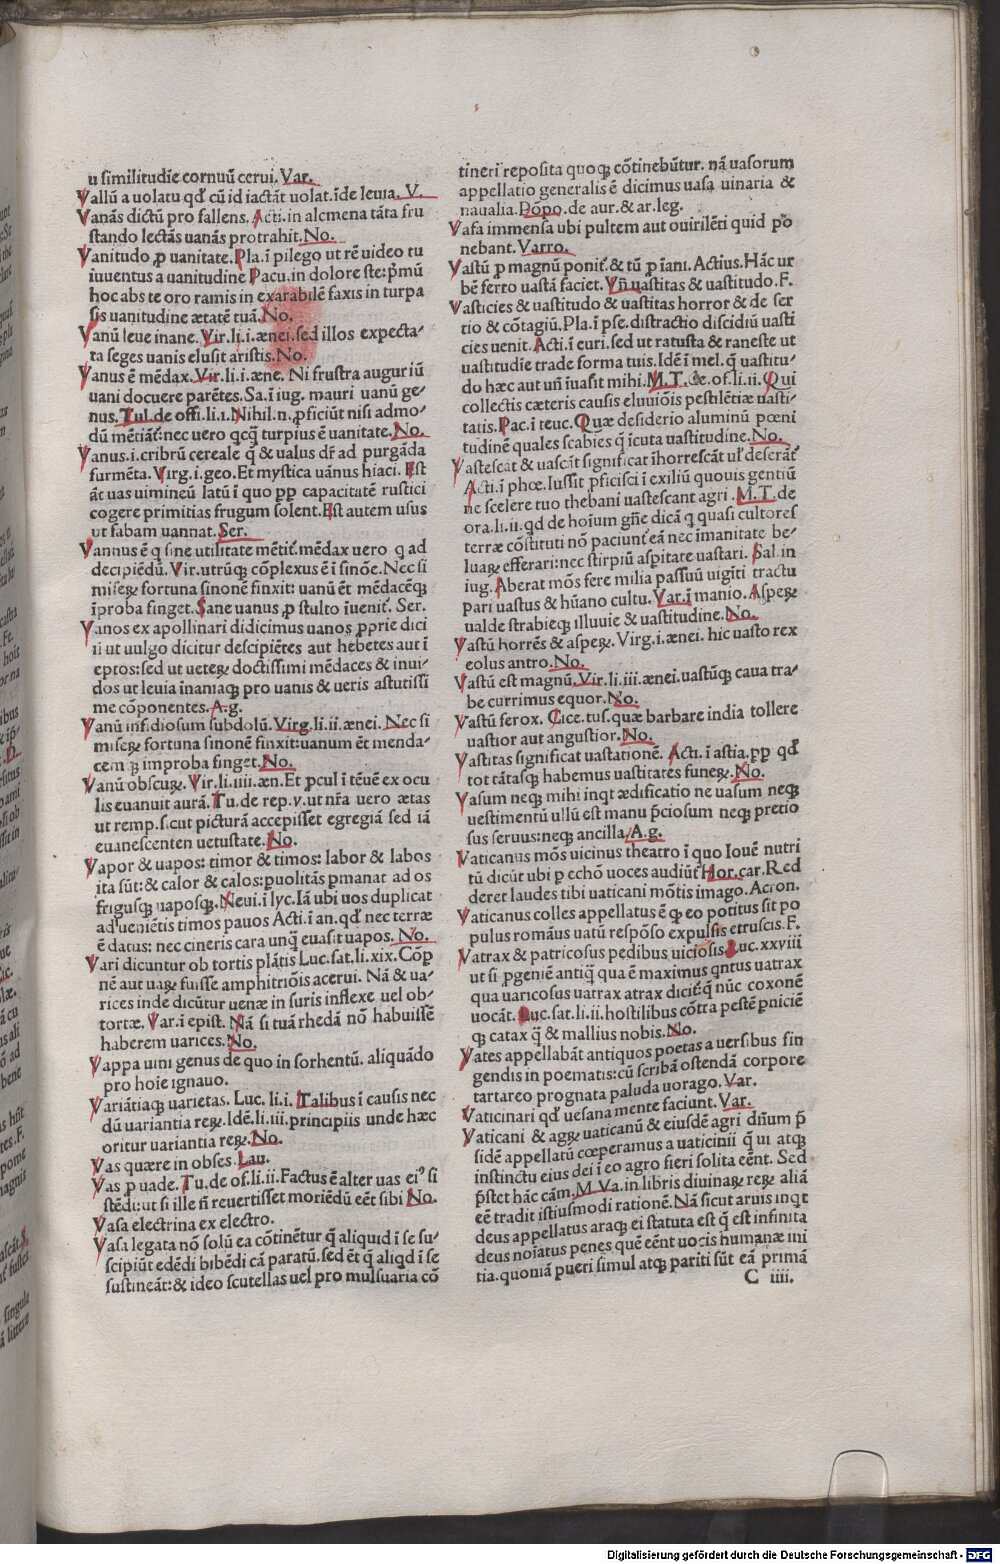 u similitudīe cornuū cerui. Var.
Vallū a uolatu qd' cū id iactāt uolat. īde leuia. V.
Vanās dictū pro fallens. Acti. in alcmena tāta fru
stando lectās uanās protrahit. No.
Vanitudo ꝓ uanitate. Pla. ī pſego ut rē uideo tu
iuuentus a uanitudine Pacu. in dolore ste: p̄mū
hoc abs te oro ramis in exarabilē faxis in turpa
sis uanitudine ætatē tuā. No.
Vanū leue inane. Vir. li. i. ænei. sed illos expecta-
ta seges uanis elusit aristis. No.
Vanus ē mēdax. Vir. li. i. æne. Ni frustra augur iū
uani docuere parētes. Sa. ī iug. mauri uanū ge-
nus. Tul. de offi. li. 1. Nihil. n. ꝓficiūt nisi admo-
dū mētiāt̄: nec uero qcq̄ turpius ē uanitate. No.
Vanus. i. cribrū cereale q̄ & ualus dr̄ ad purgāda
furmēta. Virg. i. geo. Et mystica uānus hiaci. Est
āt uas uimineū latū ī quo ꝓp capacitatē rustici
cogere primitias frugum solent. Est autem usus
ut fabam uannat. Ser.
Vannus ē q sine utilitate mētit̄. mēdax uero q ad
decipiēdū. Vir. utrūq; cōplexus ē ī sinōe. Nec si
miseꝝ fortuna sinonē finxit: uanū ēt mēdacēq;
īproba finget. Sane uanus ꝓ stulto īuenit̄. Ser.
Vanos ex apollinari didicimus uanos ꝓprie dici
ii ut uulgo dicitur descipiētes aut hebetes aut ī
eptos: sed ut ueteꝝ doctissimi mēdaces & inui-
dos ut leuia inaniaq; pro uanis & ueris astutissi
me cōponentes. A. g.
Vanū insidiosum subdolū. Virg. li. ii. ænei. Nec si
miseꝝ fortuna sinonē finxit: uanum ēt menda-
cem q; improba finget. No.
Vanū obscuꝝ. Vir. li. iiii. æn. Et ꝓcul ī tēuē ex ocu
lis euanuit aurā. Tu. de rep. v. ut nr̄a uero ætas
ut remp. sicut picturā accepisset egregiā sed iā
euanescenten uetustate. No.
Vapor & uapos: timor & timos: labor & labos
ita sūt: & calor & calos: puolitās ꝑmanat ad os
frigusq; uaposq;. Neui. ī lyc. Iā ubi uos duplicat
ad'ueniētis timos pauos Acti. ī an. qd' nec terræ
ē datus: nec cineris cara unq̄ euasit uapos. No.
Vari dicuntur ob tortis plātis Luc. sat. li. xix. Cōp
nē aut uaꝝ fuisse amphitriōis acerui. Nā & ua-
rices inde dicūtur uenæ in suris inflexe uel ob-
tortæ. Var. ī epist. Nā si tuā rhedā nō habuissē
haberem uarices. No.
Vappa uini genus de quo in sorhentū. aliquādo
pro hoīe ignauo.
Variātiaq; uarietas. Luc. li. i. Talibus ī causis nec
dū uariantia reꝝ. Idē. li. iii. principiis unde hæc
oritur uariantia reꝝ. No.
Vas quære in obses. Lau.
Vas ꝑ uade. Tu. de of. li. ii. Factus ē alter uas ei⁹ si
stēdi: ut si ille n̄ reuertisset moriēdū eēt sibi No.
Vasa electrina ex electro.
Vasa legata nō solū ea cōtinētur q̄ aliquid ī se su-
scipiūt edēdi bibēdi cā paratū. sed ēt q̄ aliqd ī se
sustineāt: & ideo scutellas uel pro mulsuaria cō
tineri reposita quoq; cōtinebūtur. nā uasorum
appellatio generalis ē dicimus uasa uinaria &
naualia. Pōpo. de aur. & ar. leg.
Vasa immensa ubi pultem aut ouirilēti quid po
nebant. Varro.
Vastū ꝓ magnū ponit̄. & tū ꝓ īani. Actius. Hāc ur
bē ferro uastā faciet. Vn̄ uastitas & uastitudo. F.
Vasticies & uastitudo & uastitas horror & de ser
tio & cōtagiū. Pla. ī pse. distractio discidiū uasti
cies uenit. Acti. ī euri. sed ut ratusta & raneste ut
uastitudīe trade forma tuis. Idē ī mel. q̄ uastitu-
do hæc aut un̄ īuasit mihi. M. T. de. of. li. ii. Qui
collectis cæteris causis eluuiōis pestilētiæ uasti-
tatis. Pac. ī teuc. Quæ desiderio aluminū pœni
tudinē quales scabies q̄ icuta uastitudine. No.
Vastescāt & uascāt significat īhorrescāt ul' deserāt̄
Acti. ī phœ. Iussit ꝓficisci ī exiliū quouis gentiū
ne scelere tuo thebani uastescant agri. M. T. de
ora. li. ii. qd de hoīum gn̄e dicā q quasi cultores
terræ cōstituti nō paciunt̄ eā nec imanitate be-
luaꝝ efferari: nec stirpiū aspitate uastari. Sal. in
iug. Aberat mōs fere milia passuū uigīti tractu
pari uastus & hūano cultu. Var. ī manio. Aspeꝝ
ualde strabieq; illuuie & uastitudine. No.
Vastū horrēs & aspeꝝ. Virg. i. ænei. hic uasto rex
eolus antro. No.
Vastū est magnū. Vir. li. iii. ænei. uastūq; caua tra-
be currimus equor. No.
Vastū ferox. Cice. tus. quæ barbare india tollere
uastior aut angustior. No.
Vastitas significat uastationē. Acti. ī astia. ꝓp qd'
tot tātasq; habemus uastitates funeꝝ. No.
Vasum neq; mihi inqt ædificatio ne uasum neq;
uestimentū ullū est manu p̄ciosum neq; pretio
sus seruus: neq; ancilla. A. g.
Vaticanus mōs uicinus theatro ī quo Iouē nutri
tū dicūt ubi ꝑ echō uoces audiūt̄ Hor. car. Red
deret laudes tibi uaticani mōtis imago. Acron.
Vaticanus colles appellatus ē q eo potitus sit po
pulus romāus uatū respōso expulsis etruscis. F.
Vatrax & patricosus pedibus uiciosis Luc. xxviii
ut si ꝓgeniē antiq̄ qua ē maximus qntus uatrax
qua uaricosus uatrax atrax dicit̄ q̄ nūc coxonē
uocāt. Luc. sat. li. ii. hostilibus cōtra pestē ꝑniciē
q; catax q̄ & mallius nobis. No.
Vates appellabāt antiquos poetas a uersibus fin
gendis in poematis: cū scribā ostendā corpore
tartareo prognata paluda uorago. Var.
Vaticinari qd' uesana mente faciunt. Var.
Vaticani & agꝝ uaticanū & eiusdē agri dn̄um p̄
sidē appellatū cœperamus a uaticinii q̄ ui atq;
instinctu eius dei ī eo agro fieri solita eēnt. Sed
p̄stet hāc cām. M. Va. in libris diuinaꝝ reꝝ aliā
eē tradit istiusmodi rationē. Nā sicut aruis inqt
deus appellatus araq; ei statuta est q̄ est infinita
deus noīatus penes quē eēnt uocis humanæ ini
tia. quoniā pueri simul atq; pariti sūt eā primā
C iiii.
Digitalisierung gefördert durch die Deutsche Forschungsgemeinschaft - DFG